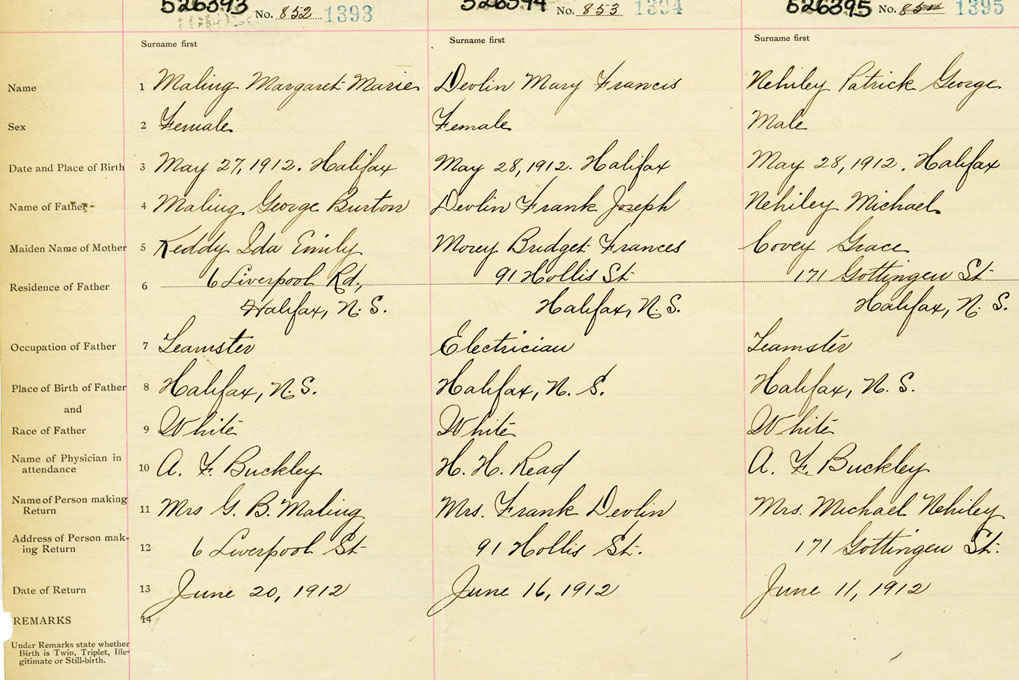 526393 No. 852 1393 526394 No. 853 1394 526395 No. 854 1395
Surname first Surname first Surname first
Name 1 Maling Margaret Marie Devlin Mary Francis Nehiley Patrick George
Sex 2 Female Female Male
Date and Place of Birth 3 May 27, 1912. Halifax May 28, 1912. Halifax May 28, 1912. Halifax
Name of Father 4 Maling George Burton Devlin Frank Joseph Nehiley Michael
Maiden Name of Mother 5 Keddy Ida Emily Morey Bridget Frances Covey Grace
Residence of Father 6 6 Liverpool Rd., 91 Hollis St 171 Gottingen St
Halifax, N.S. Halifax, N.S. Halifax, N.S.
Occupation of Father 7 Teamster Electrician Teamster
Place of Birth of Father 8 Halifax, N.S. Halifax, N.S. Halifax, N.S.
and
Race of Father 9 White White White
Name of Physician in
attendance 10 A. F. Buckley H. H. Read A. F. Buckley
Name of Person making
Return 11 Mrs G. B. Maling Mrs. Frank Devlin Mrs. Michael Nehiley
Address of Person mak-
ing Return 12 6 Liverpool St 91 Hollis St. 171 Gottingen St.
Date of Return 13 June 20, 1912 June 16, 1912 June 11, 1912
REMARKS 14
Under Remarks state whether
Birth is Twin, Triplet, Ille-
gitimate or Still-birth.